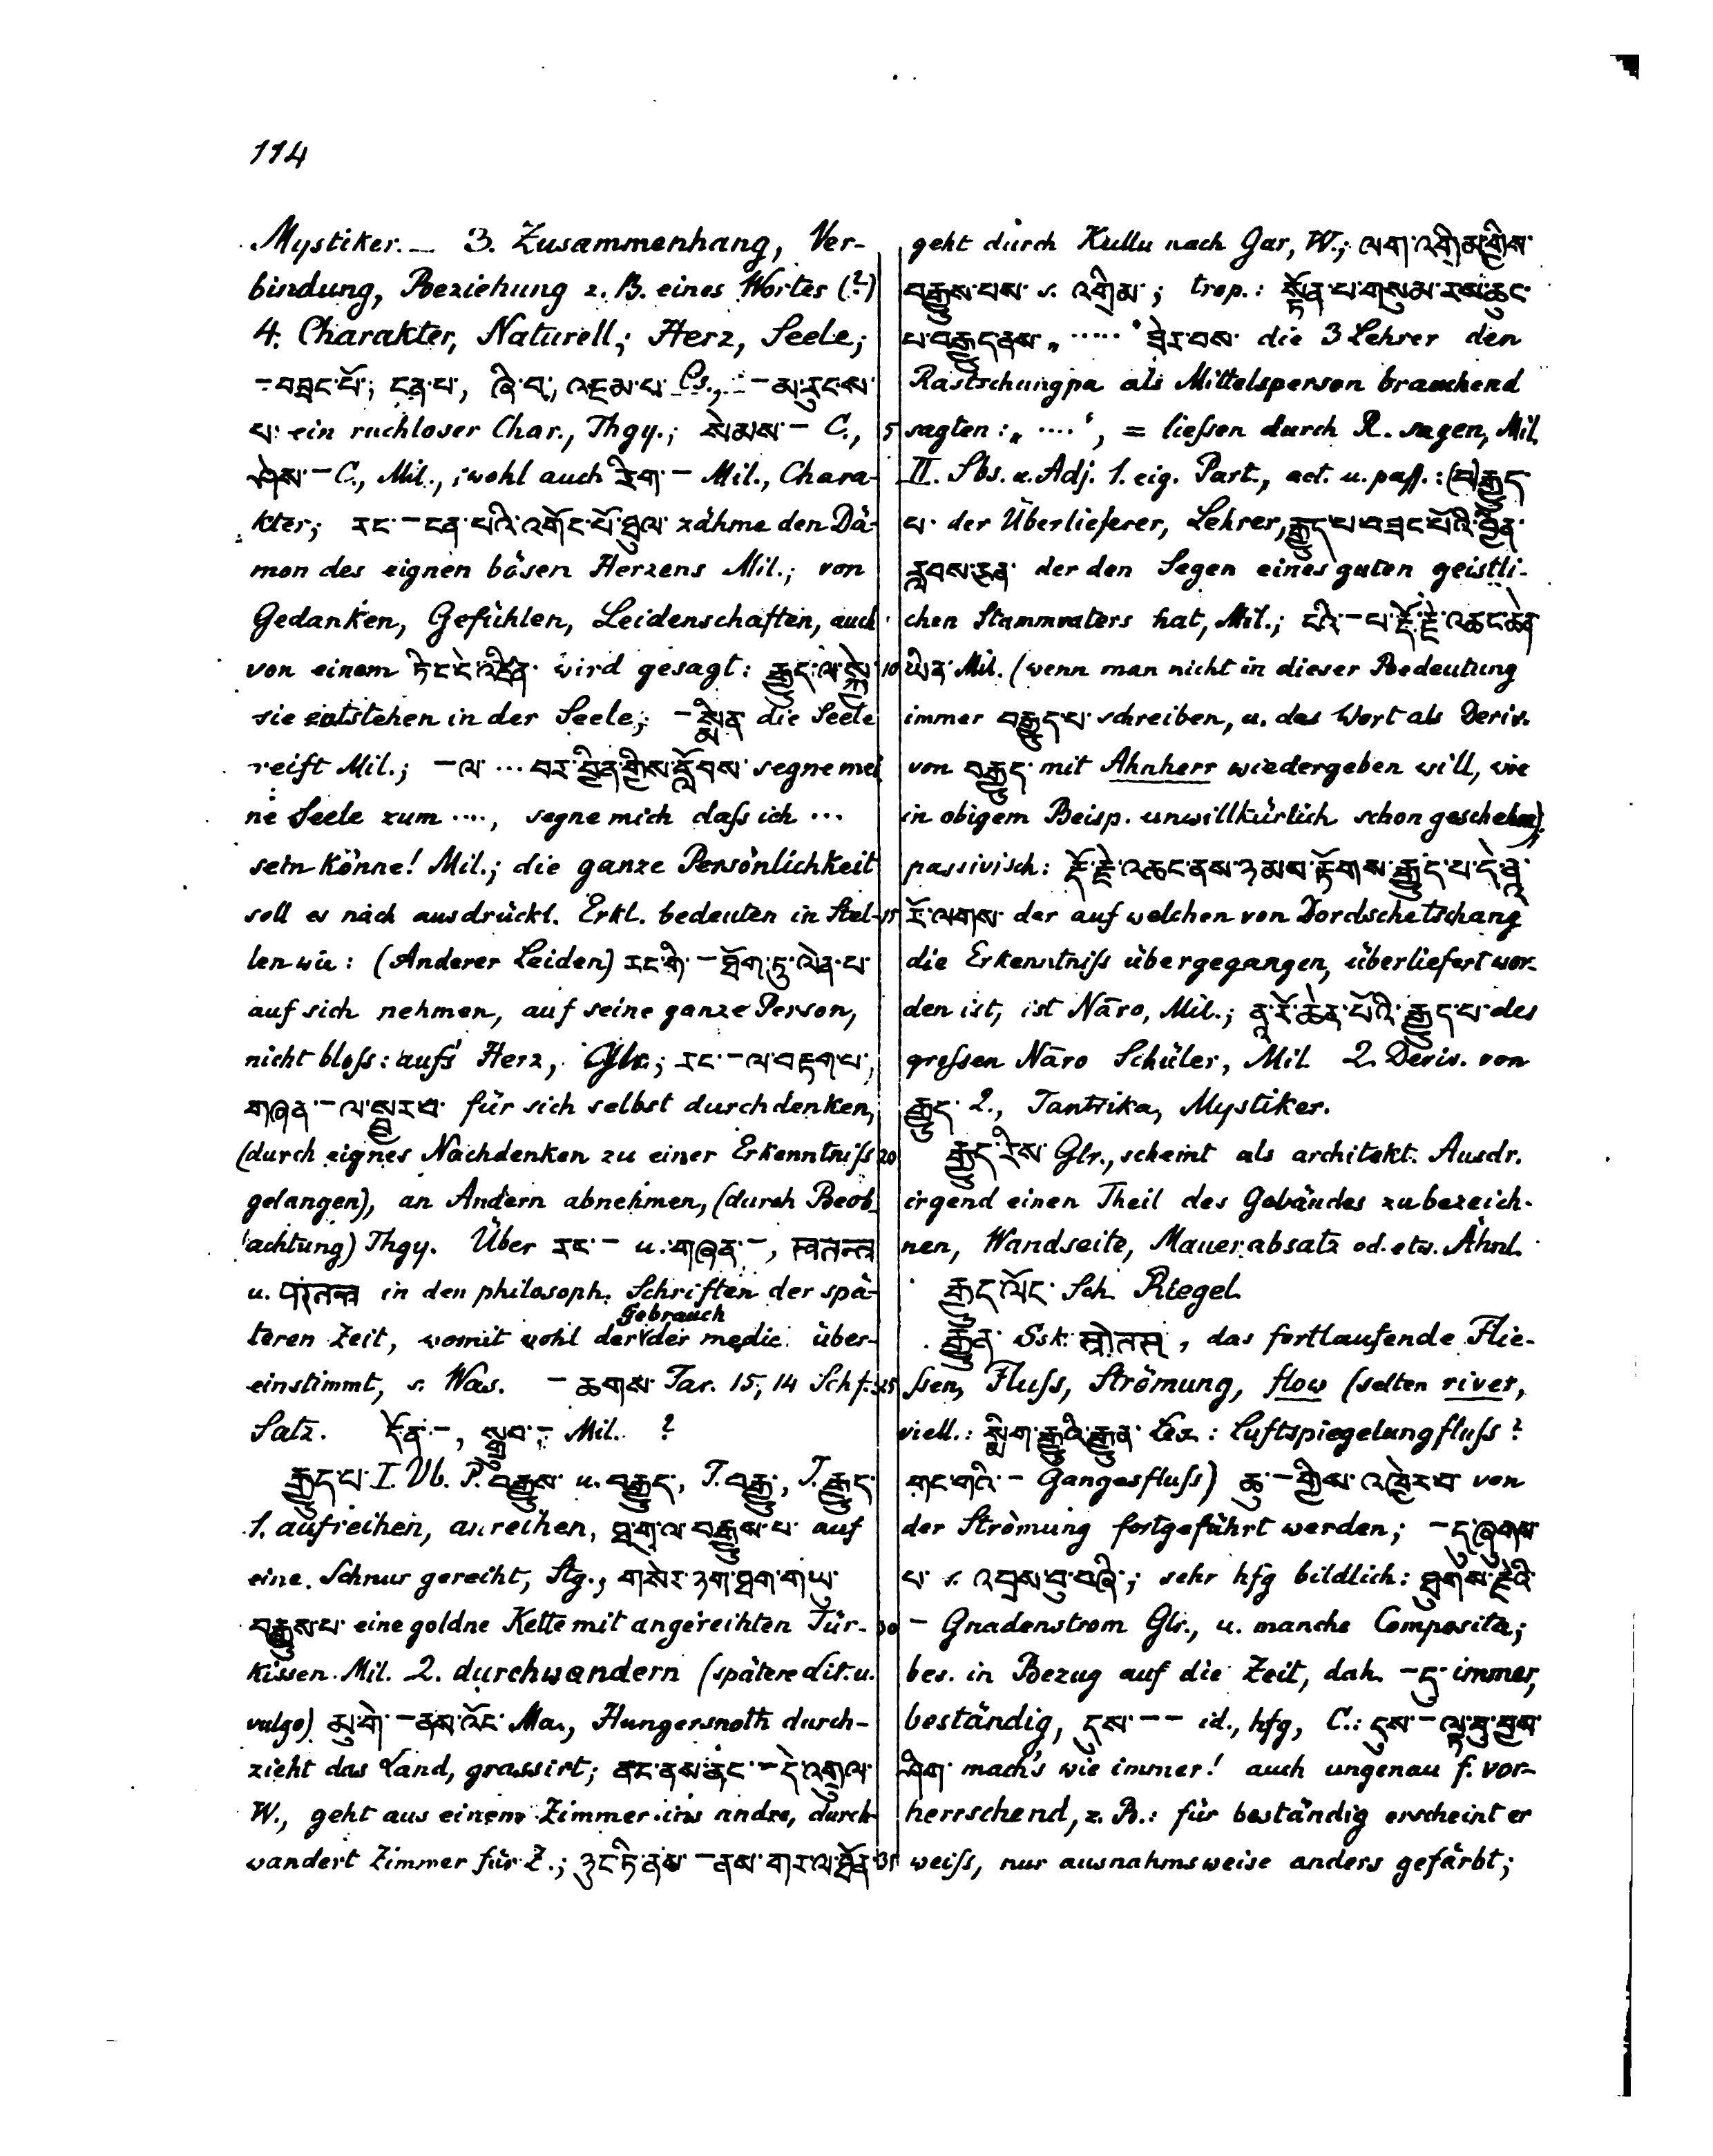 114
Mystiker. — 3. Zusammenhang, Ver-
bindung, Beziehung z. B. eines Wortes (?)
4. Charakter, Naturell; Herz, Seele;
– བཟང་པོ; ངན་པ, ཞི་བ, འཇམ་པ Cs., – མ་རུངས་
པ་ ein ruchloser Char., Thgy.; སེམས་ – C.,
ཤེས་ – C., Mil., wohl auch རིག་ – Mil., Chara-
kter; རང་ – ངན་པའི་འགོང་པོ་ཐུལ་ zähme den Dä-
mon des eignen bösen Herzens Mil.; von
Gedanken, Gefühlen, Leidenschaften, auch
von einem ཏིང་ངེ་འཛིན་ wird gesagt: རྒྱུད་ལ་སྐྱེ་
sie entstehen in der Seele; – སྨིན die Seele
reift Mil.; – ལ་ ... བར་བྱིན་གྱིས་རློབས་ segne mei
ne Seele zum ...., segne mich dass ich ...
sein könne! Mil.; die ganze Persönlichkeit
soll es nach ausdrückl. Erkl. bedeuten in Stel-
len wie: (Anderer Leiden) རང་གི་ – ཐོག་ཏུ་ལེན་པ་
auf sich nehmen, auf seine ganze Person,
nicht bloss: aufs Herz, Glr.; རང་ – ལ་བརྟག་པ,
གཞན་ – ལ་སྦྱར་བ་ für sich selbst durchdenken,
(durch eignes Nachdenken zu einer Erkenntniss
gelangen), an Andern abnehmen, (durch Beob-
achtung) Thgy. Über རང་ – u. གཞན་ –, स्वतन्त्र
u. परतन्त्र in den philosoph. Schriften der spä-
Gebrauch
teren Zeit, womit wohl der der medic. über-
einstimmt, s. Was. – ཆགས་ Tar. 15, 14 Schf.
Satz. དོན་ –, སྒྲུབ་ – Mil. ?
རྒྱུད་པ་ I. Vb. P. བརྒྱུས་ u. བརྒྱུད, F. བརྒྱུ, I. རྒྱུད་
1. aufreihen, anreihen, ཐ་གུ་ལ་བརྒྱུས་པ་ auf
eine Schnur gereiht, Stg.; གསེར་ཉག་ཐག་གཡུ་
བརྒྱུས་པ་ eine goldne Kette mit angereihten Tür-
kissen Mil. 2. durchwandern (spätere Lit. u.
vulgo) མུ་གེ་ – ནས་འོང་ Ma., Hungersnoth durch-
zieht das Land, grassirt; ནང་ནས་ནང་ – དེ་འགྲུལ་
W., geht aus einem Zimmer ins andre, durch-
wandert Zimmer für Z.; ཉུང་ཏི་ནས་ – ནས་གར་ལ་ཐོན་
geht durch Kullu nach Gar, W.; ལག་འགྲིམ་གྱིས་
བརྒྱུས་པས་ s. འགྲིམ་; trop.: སྟོན་པ་གསུམ་རས་ཆུང་
པ་བརྒྱུད་ནས་ „.....‘ ཟེར་བས་ die 3 Lehrer den
Rastschungpa als Mittelsperson brauchend
5 sagten: „....‘, = liessen durch R. sagen, Mil.
II. Sbs. u. Adj. 1. eig. Part., act. u. pass.: (བ)རྒྱུད་
པ་ der Überlieferer, Lehrer, རྒྱུད་པ་བཟང་པོའི་བྱིན་
རླབས་ཅན་ der den Segen eines guten geistli-
chen Stammvaters hat, Mil.; ངའི་ – པ་རྡོ་རྗེ་འཆང་ཆེན་
10 ཡིན་ Mil. (wenn man nicht in dieser Bedeutung
immer བརྒྱུད་པ་ schreiben, u. das Wort als Deriv.
von བརྒྱུད་ mit Ahnherr wiedergeben will, wie
in obigem Beisp. unwillkürlich schon geschehen);
passivisch: རྡོ་རྗེ་འཆང་ནས་ཉམས་རྟོགས་རྒྱུད་པ་དེ་ནཱ་
15 རོ་ལགས་ der auf welchen von Dordschetschang
die Erkenntniss übergegangen, überliefert wor-
den ist, ist Nāro, Mil.; ནཱ་རོ་ཆེན་པོའི་རྒྱུད་པ་ des
grossen Nāro Schüler, Mil. 2. Deriv. von
རྒྱུད་ 2., Tantrika, Mystiker.
20 རྒྱུད་རིས་ Glr., scheint als architekt. Ausdr.
irgend einen Theil des Gebäudes zu bezeich-
nen, Wandseite, Mauerabsatz od. etw. Ähnl.
རྒྱུད་ལོང་ Sch. Riegel.
རྒྱུན་ Ssk. स्रोतस्, das fortlaufende Flie-
25 ssen, Fluss, Strömung, flow (selten river,
viell.: སྨིག་རྒྱུའི་རྒྱུན་ Lex.: Luftspiegelungfluss?
གང་གའི་ – Gangesfluss) ཆུ་ – གྱིས་འཁྱེར་བ་ von
der Strömung fortgeführt werden; – དུ་ཞུགས་
པ་ s. འབྲས་བུ་བཞི་; sehr hfg bildlich: ཐུགས་རྗེའི་
30 – Gnadenstrom Glr., u. manche Composita;
bes. in Bezug auf die Zeit, dah. – དུ་ immer,
beständig, དུས་ – – id., hfg, C.: དུས་ – ལྟ་བུ་བྱས་
ཤིག་ mach's wie immer! auch ungenau f. vor-
herrschend, z. B.: für beständig erscheint er
35 weiss, nur ausnahmsweise anders gefärbt;